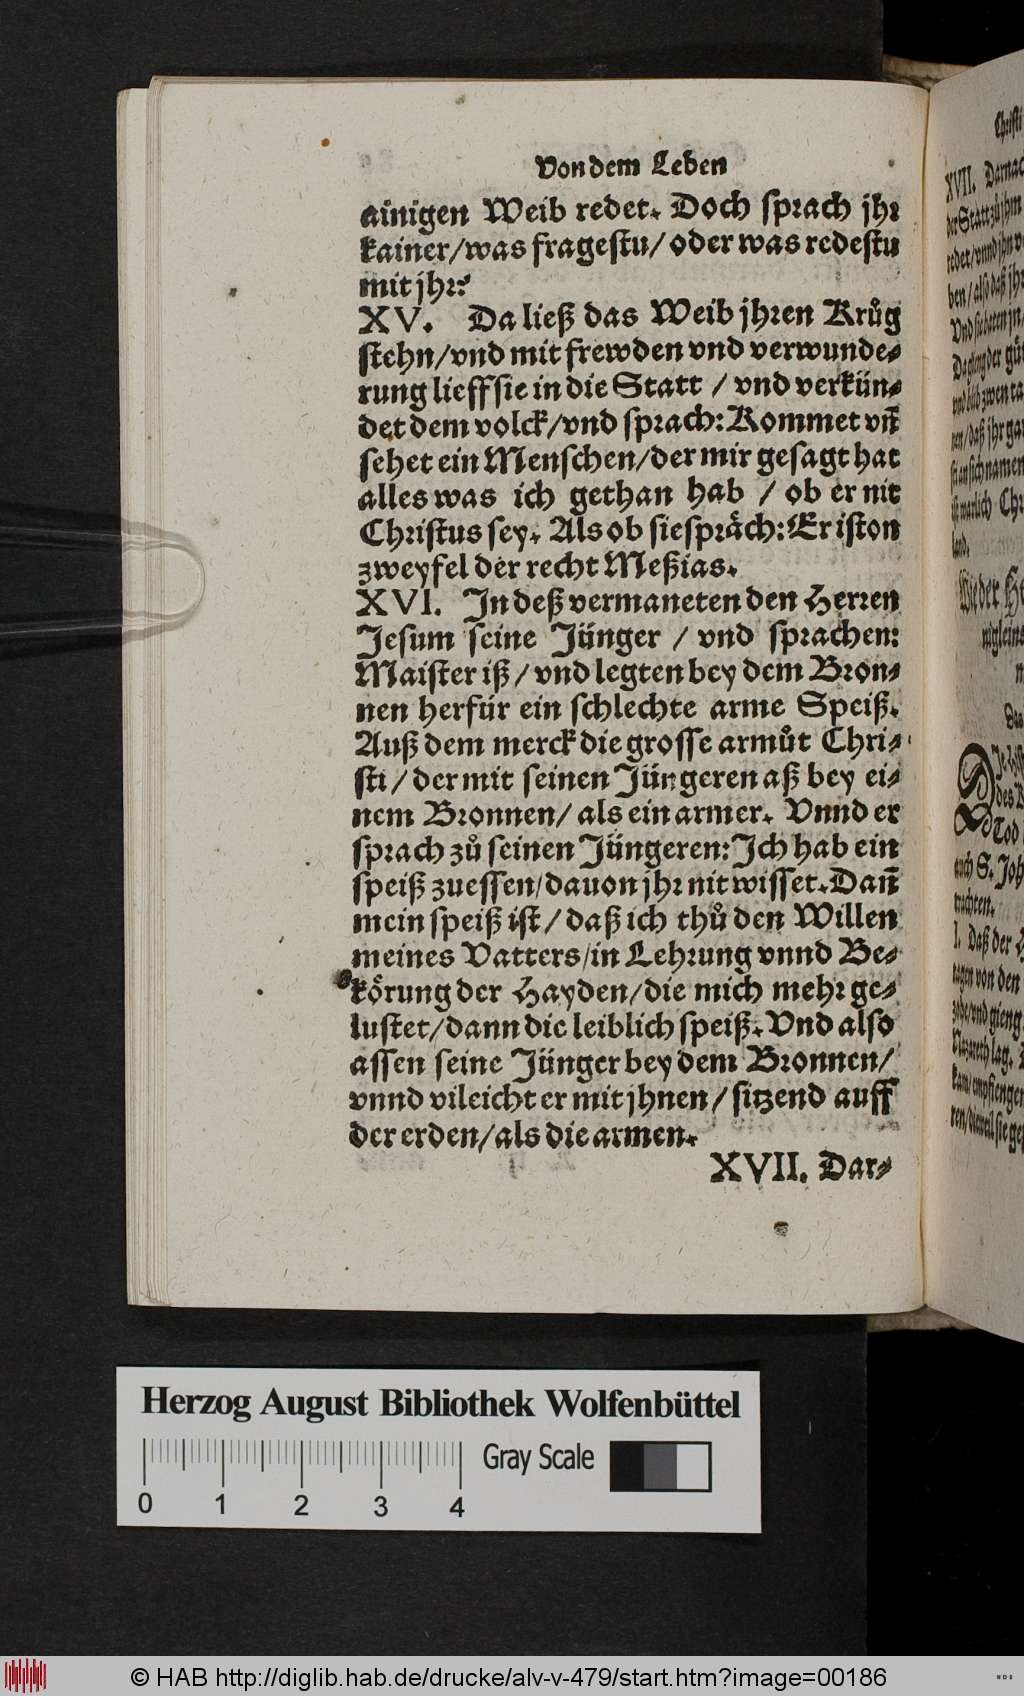 Von dem Leben
ainigen Weib redet. Doch sprach jhr
kainer/was fragestu/ oder was redestu
mit jhr?
XV. Da ließ das Weib jhren Kruͦg
stehn/vnd mit frewden vnd verwunde⸗
rung lieff sie in die Statt / vnd verkün⸗
det dem volck/vnd sprach: Kommet vn̄
sehet ein Menschen/der mir gesagt hat
alles was ich gethan hab / ob er nit
Christus sey. Als ob sie spraͤch: Er ist on
zweyfel der recht Meßias.
XVI. In deß vermaneten den Herren
Jesum seine Jünger / vnd sprachen:
Maister iß / vnd legten bey dem Bron⸗
nen herfür ein schlechte arme Speiß.
Auß dem merck die grosse armuͦt Chri⸗
sti / der mit seinen Jüngeren aß bey ei⸗
nem Bronnen/ als ein armer. Vnnd er
sprach zuͦ seinen Jüngeren: Ich hab ein
speiß zuessen/dauon jhr nit wisset. Dan̄
mein speiß ist / daß ich thuͦ den Willen
meines Vatters/in Lehrung vnnd Be⸗
koͤrung der Hayden/die mich mehr ge⸗
lustet/dann die leiblich speiß. Vnd also
assen seine Jünger bey dem Bronnen/
vnnd vileicht er mit jhnen / sitzend auff
der erden/als die armen.
XVII. Dar⸗
Christi
XVII. Darnac
der Statt zuͦ jhm
redet/vnnd jhn
ben/also daß jhr
Vnd sie baten jn
Da gieng der
vnd blib zwen ta
nen/daß jhr gar
Chr
land.
Wie der He
Tod
auch S. Joh
I. Daß der H
tagen von den
vnd gieng
Nazareth lag.
kam/ empfiengen
ren/dieweil sie
Herzog August Bibliothek Wolfenbüttel
0 1 2 3 4
Gray Scale
© HAB http://diglib.hab.de/drucke/alv-v-479/start.htm?image=00186